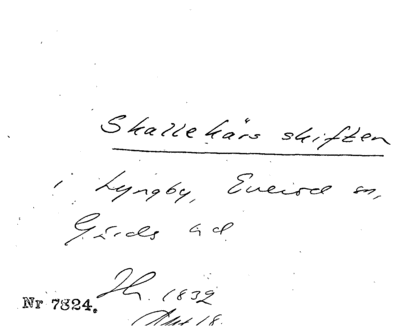 Skallekärs skiften
i Lyngby, Everöd sn,
Gärds hd
Nr 7824. 1832